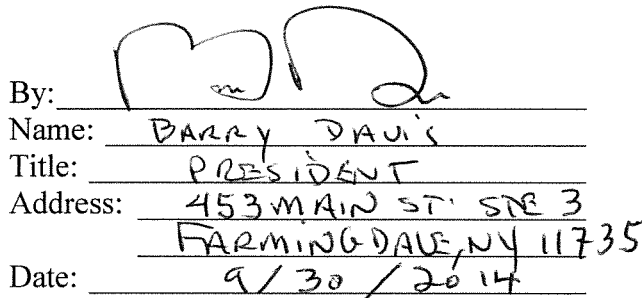 By:
Name: BARRY DAVIS
Title: PRESIDENT
Address: 453 MAIN ST. STE 3
FARMINGDALE, NY 11735
Date: 9/30/2014